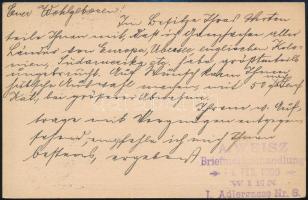 Euer Wohlgeboren!
Im Besitze Ihres Werten
teile Ihnen mit, daß ich Ganzsachen aller
Länder von Europa, Übersee, englischen Kolo-
nien, Südamerika etz. habe größtenteils
ungebraucht. Auf Wunsch kann Ihnen
hübsche Auswahl machen mit 50 %
bei größerer Abnahme.
Ihrem w. Auf-
trage mit Vergnügen entgegen
sehend, empfehle ich mich Ihnen
bestens, ergebenst
Briefmarkenhandlung
WIEN
I. Adlergasse Nr. 8.